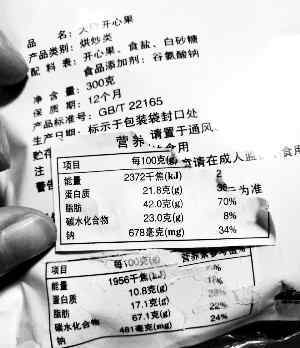 品 名：大 开心果
产品类别：烘炒类
配 料 表：开心果、食盐、白砂糖
食品添加剂：谷氨酸钠
净 含 量：300克
保 质 期：12个月
产品标准号：GB/T 22165
生产日期：标示于包装袋封口处
贮存 请置于通风、
注 食用
警告 请在成人监 食用
营养
项目 每100克(g)
能量 2372千焦(kJ) 2
蛋白质 21.8克(g) 36 为准
脂肪 42.0克(g) 70%
碳水化合物 23.0克(g) 8%
钠 678毫克(mg) 34%
项目 每100克(g) 营养素参考值
能量 1956千焦(kJ)
蛋白质 10.8克(g)
脂肪 17.1克(g)
碳水化合物 67.1克(g) 22%
钠 481毫克(mg) 24%